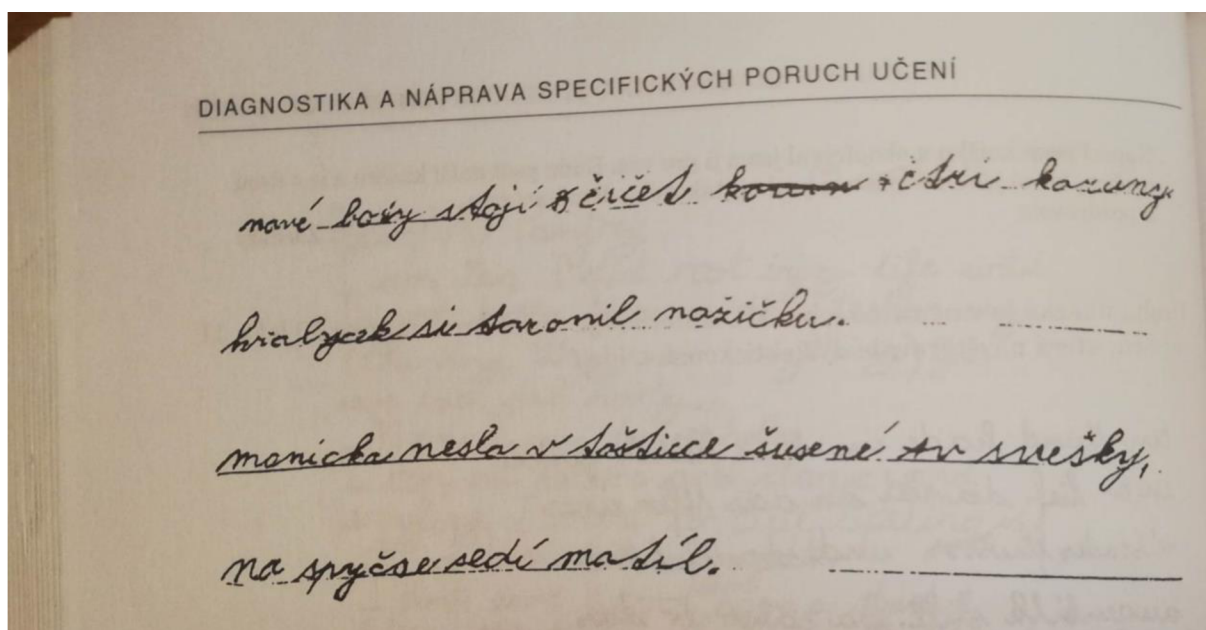 DIAGNOSTIKA A NÁPRAVA SPECIFICKÝCH PORUCH UČENÍ
nové boty stojí čičet čtri koruny.
si zaronil nožičku.
monicka nesla v tašticce šusené sv svešky,
na spyčse sedí motíl.